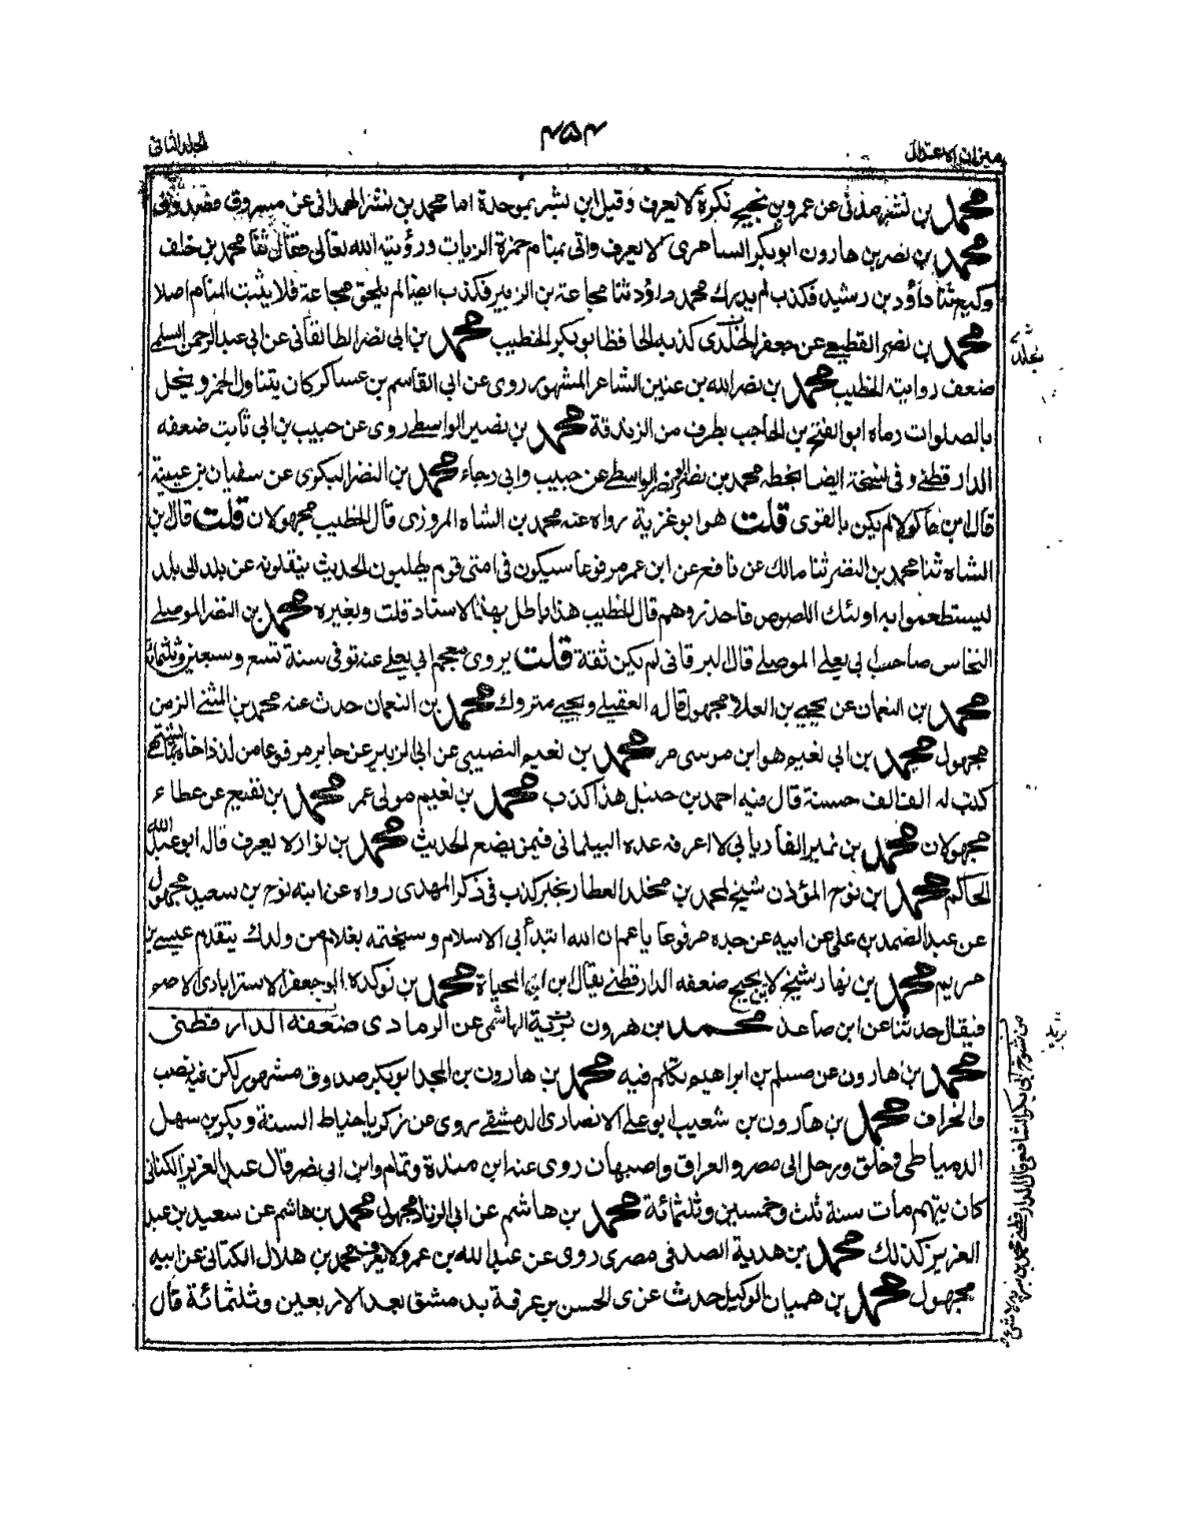 ميزان الاعتدال
٤٥٤
المجلد الثاني
محمد بن نشر مدني عن عمرو بن نجيح نكرة لا يعرف وقيل ابن بشر بموحدة اما محمد بن نشر الهمداني عن مسروق فقد وثق
محمد بن نصر بن هارون ابو بكر السامري لا يعرف واتى بمنام حمزة الزيات ورؤيته الله تعالى فقال ثنا محمد بن خلف
وكيع ثنا داؤد بن رشيد فكذب لم يدرك محمد داؤد ثنا مجاعة بن الزبير فكذب ايضا لم يلحق مجاعة فلا يثبت المنام اصلا
محمد بن نصر القطيعي عن جعفر الخلدي كذبه الحافظ ابو بكر الخطيب محمد بن ابي نصر الطالقاني عن ابي عبد الرحمن السلمي
ضعف روايته الخطيب محمد بن نصر الله بن عنين الشاعر المشهور روى عن ابي القاسم بن عساكر كان يتناول الخمر ويخل
بالصلوات رماه ابو الفتح بن الحاجب بطرف من الزندقة محمد بن نصير الواسطي روى عن حبيب بن ابي ثابت ضعفه
الدارقطني وفي نسخة ايضا بخطه محمد بن الواسطي عن حبيب وابي رجاء محمد بن النضر البكري عن سفيان بن عيينة
قال ابن ماكولا لم يكن بالقوى قلت هو ابو غزية رواه عنه محمد بن الشاه المروزي قال الخطيب مجهولان قلت قال ابن
الشاه ثنا محمد بن النضر ثنا مالك عن نافع عن ابن عمر مرفوعا سيكون في امتى قوم يطلبون الحديث ينقلونه عن بلد الى بلد
ليستطعموا به اولئك اللصوص فاحذروهم قال الخطيب هذا باطل بهذا الاسناد قلت وبغيره محمد بن النضر الموصلي
النخاس صاحب ابي يعلي الموصلي قال البرقاني لم يكن ثقة قلت يروى معجم ابي يعلي عنه توفى سنة تسع وسبعين وثلثمائة
محمد ابن النعمان عن يحيى بن العلا مجهول قاله العقيلي ويحيى متروك محمد بن النعمان حدث عنه محمد بن المثنى الزمن
مجهول محمد بن ابي نعيم هو ابن موسى مر محمد بن نعيم النصيبي عن ابي الزبير عن جابر مرفوعا من لذذ اخاه بما يشتهى
كتب له الف الف حسنة قال فيه احمد بن حنبل هذا كذب محمد بن نعيم مولى عمر محمد بن نفيع عن عطاء
مجهولان محمد بن نمير الفاريابي لا اعرفه عده البيلماني فيمن يضع الحديث محمد بن نوار لا يعرف قاله ابو عبد الله
الحاكم محمد ابن نوح المؤذن شيخ لمحمد بن مخلد العطار بخبر كذب في ذكر المهدى رواه عن ابنه نوح بن سعيد مجهول
عن عبد الصمد بن علي عن ابيه عن جده مرفوعا يا عم ان الله ابتدأ بي الاسلام وسيختمه بغلام من ولدك يتقدم عيسى بن
مريم محمد بن نهار شيخ لابن نجيح ضعفه الدارقطني يقال ابن ابي المحياة محمد بن نوكدة ابو جعفر الاسترابادى الاصم
فيقال حدثنا عن ابن صاعد محمد بن هرون بن برية الهاشمي عن الرمادى ضعفه الدارقطنى
محمد بن هارون عن مسلم بن ابراهيم تكلم فيه محمد بن هارون بن المجدر ابو بكر صدوق مشهور لكن فيه نصب
وانحراف محمد بن هارون بن شعيب ابو علي الانصارى الدمشقي روى عن زكريا خياط السنة وبكر بن سهل
الدمياطى وخلق ورحل الى مصر والعراق واصبهان روى عنه ابن مندة وتمام وابن ابي نصر قال عبد العزيز الكتاني
كان يتهم مات سنة ثلث وخمسين وثلثمائة محمد بن هاشم عن ابي الزناد مجهول محمد بن هاشم عن سعيد بن عبد
العزيز كذلك محمد بن هدية الصدفى مصرى روى عن عبد الله بن عمرو لا يعرف محمد بن هلال الكناني عن ابيه
مجهول محمد بن هميان الوكيل حدث عن الحسن بن عرفة بدمشق بعد الاربعين وثلثمائة قال
من شيوخ ابي بكر الشافعي قال الدارقطني محمد بن برية لا شئ